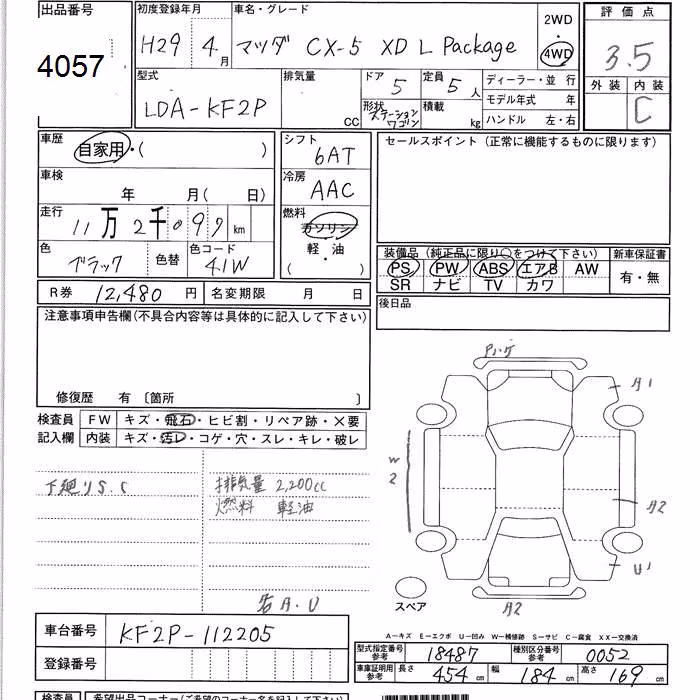 出品番号
4057
初度登録年月
H29 4月
車名・グレード
マツダ CX-5 XD L Package
2WD
・
4WD
評価点
3.5
外装 内装
C
型式
LDA-KF2P
排気量
CC
ドア
5
定員
5人
形状
ステーションワゴン
積載
kg
ディーラー・並 行
モデル年式 年
ハンドル 左・右
車歴
自家用・( )
車検
年 月( 日)
走行
11万2千097km
色
ブラック
色替
色コード
41W
シフト
6AT
冷房
AAC
燃料
ガソリン
軽・油
( ・ )
セールスポイント (正常に機能するものに限ります)
装備品 (純正品に限り○をつけて下さい)
PS PW ABS エアB AW
SR ナビ TV カワ
新車保証書
有・無
後日品
R券 12,480円
名変期限 月 日
注意事項申告欄(不具合内容等は具体的に記入して下さい)
修復歴 有 〔箇所 〕
検査員
記入欄
FW キズ・飛石・ヒビ割・リペア跡・×要
内装 キズ・汚レ・コゲ・穴・スレ・キレ・破レ
下廻りS.C
排気量 2,200cc
燃料 軽油
A1
W2
A2
U1
スペア
A2
車台番号
KF2P-112205
登録番号
A-キズ E-エクボ U-凹み W-補修跡 S-サビ C-腐食 XX-交換済
型式指定番号
参考
18487
種別区分番号
参考
0052
車庫証明用
参考
長さ 454cm
幅 184cm
高さ 169cm
検査員
希望出品コーナー(ご希望のコーナー名を記入して下さい)